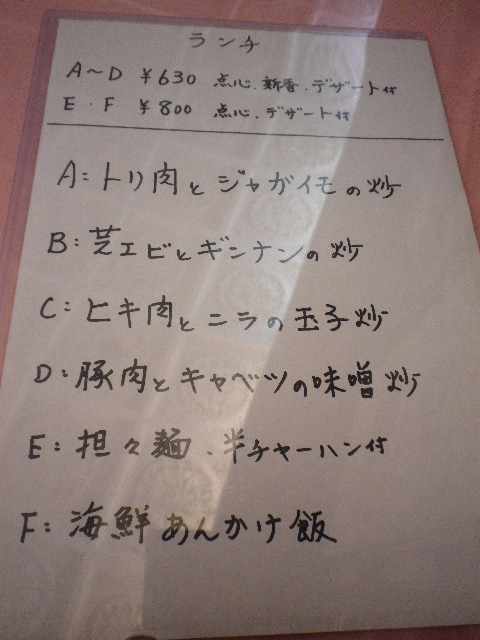 ランチ
A〜D ¥630 点心.新香.デザート付
E・F ¥800 点心.デザート付
A:トリ肉とジャガイモの炒
B:芝エビとギンナンの炒
C:ヒキ肉とニラの玉子炒
D:豚肉とキャベツの味噌炒
E:担々麺.半チャーハン付
F:海鮮あんかけ飯